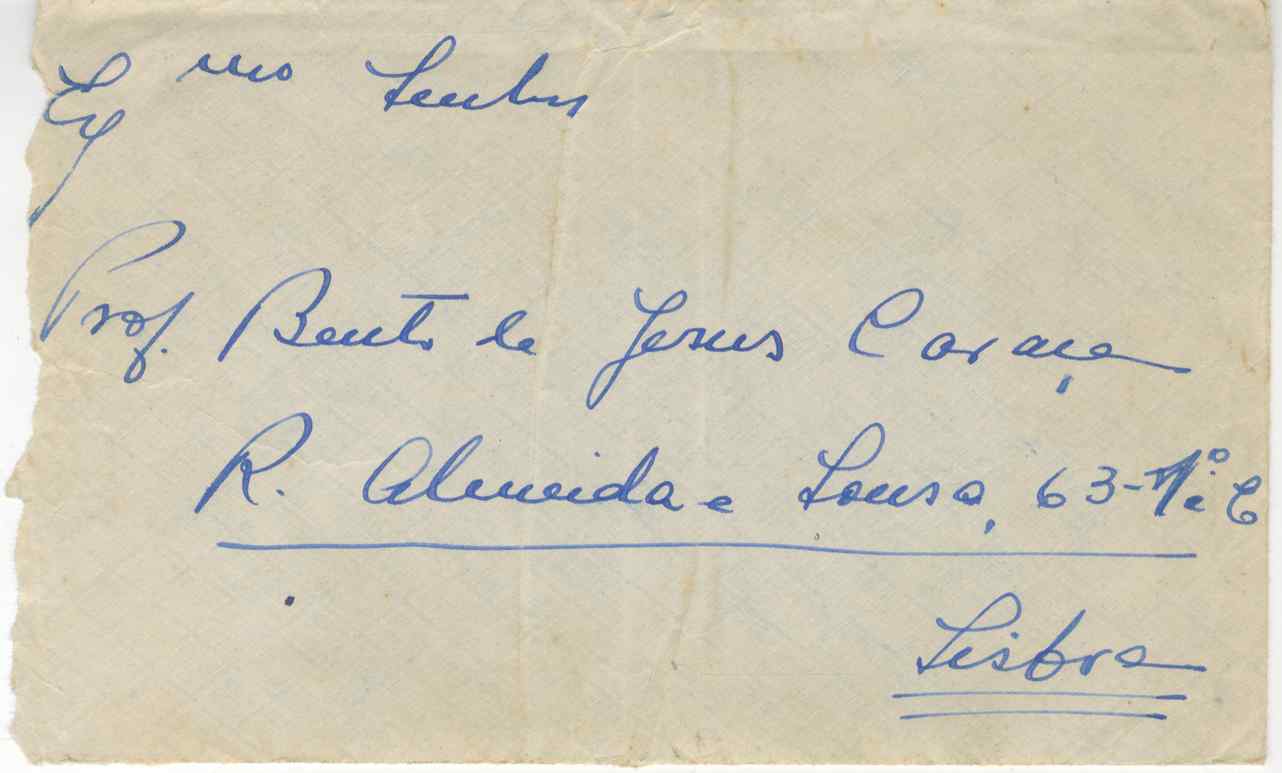 Exmo Senhor
Prof. Bento de Jesus Caraça
R. Almeida e Sousa, 63-1º C
Lisboa